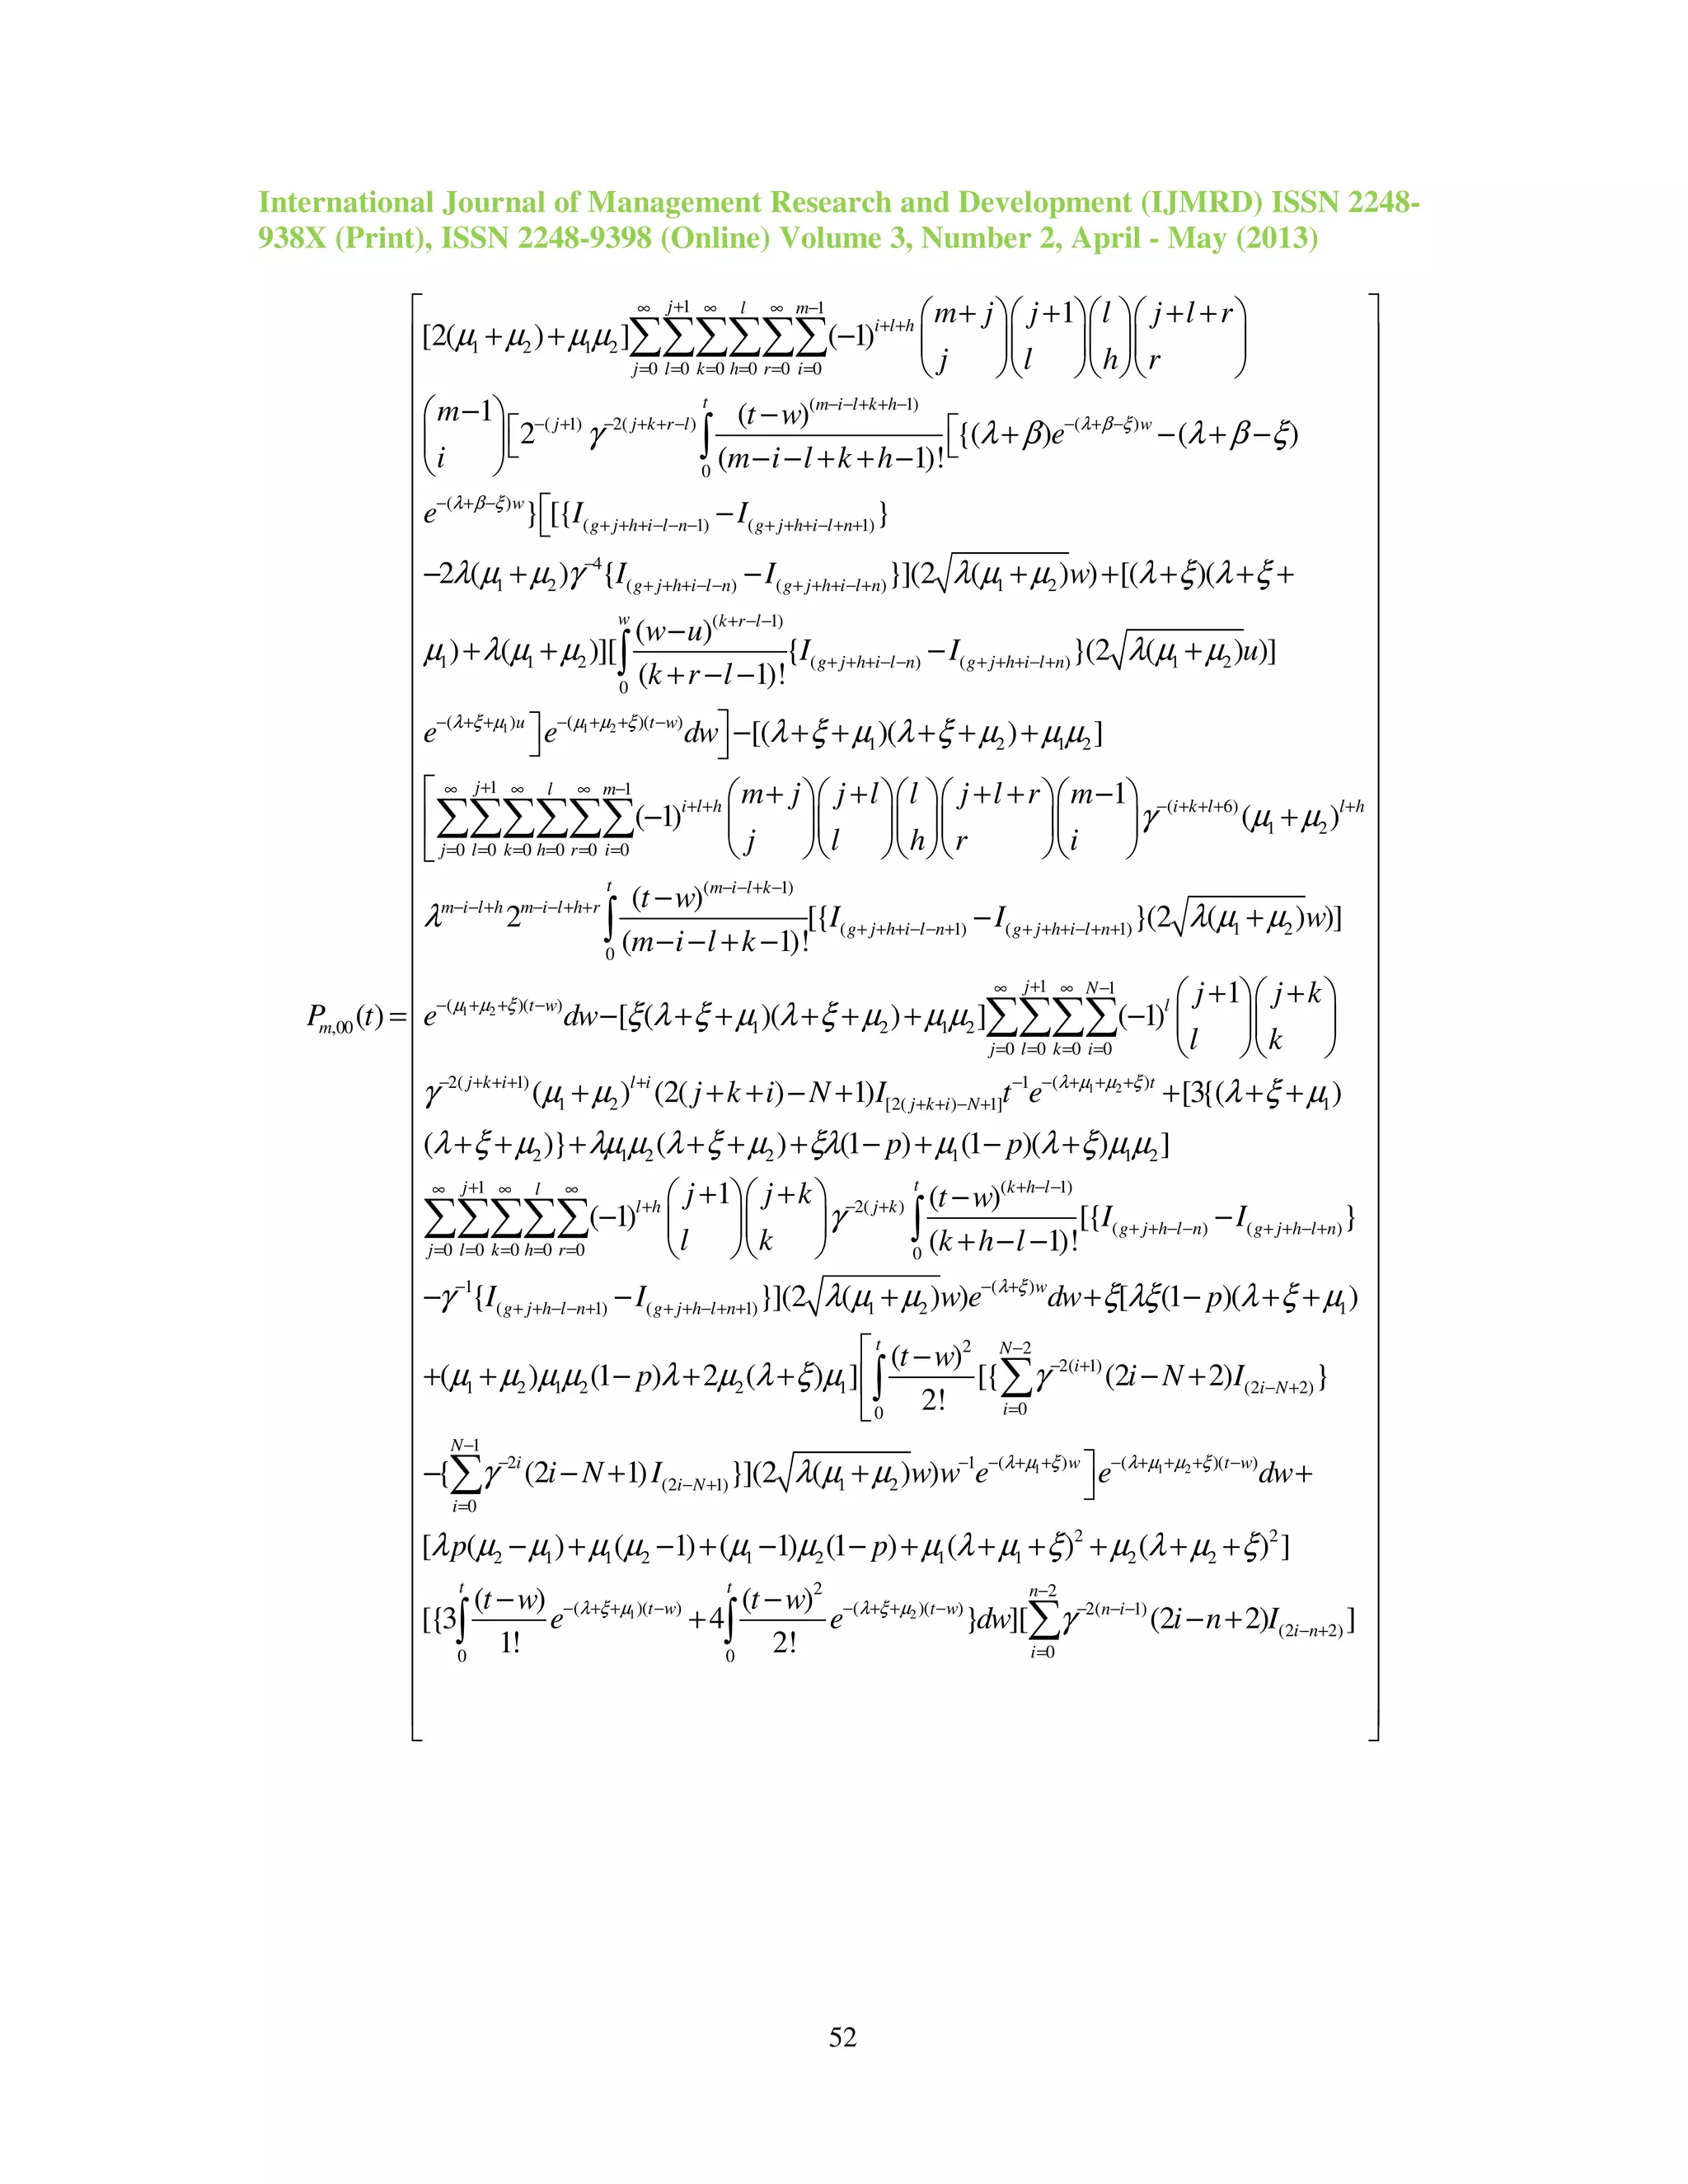 International Journal of Management Research and Development (IJMRD) ISSN 2248-
938X (Print), ISSN 2248-9398 (Online) Volume 3, Number 2, April - May (2013)
[2(μ₁+μ₂)+μ₁μ₂] \sum_{j=0}^{∞} \sum_{l=0}^{j+1} \sum_{k=0}^{∞} \sum_{h=0}^{l} \sum_{r=0}^{∞} \sum_{i=0}^{m-1} (-1)^{i+l+h} \binom{m+j}{j} \binom{j+1}{l} \binom{l}{h} \binom{j+l+r}{r}
\binom{m-1}{i} [2^{-(j+1)} γ^{-2(j+k+r-l)} \int_0^t \frac{(t-w)^{(m-i-l+k+h-1)}}{(m-i-l+k+h-1)!} [{(λ+β)e^{-(λ+β-ξ)w} -(λ+β-ξ)
e^{-(λ+β-ξ)w}} [[{I_{(g+j+h+i-l-n-1)} - I_{(g+j+h+i-l+n+1)}}
-2λ(μ₁+μ₂)γ^{-4}{I_{(g+j+h+i-l-n)} - I_{(g+j+h+i-l+n)}}](2\sqrt{λ(μ₁+μ₂)}w)+[(λ+ξ)(λ+ξ+
μ₁)+λ(μ₁+μ₂)][\int_0^w \frac{(w-u)^{(k+r-l-1)}}{(k+r-l-1)!} {I_{(g+j+h+i-l-n)} - I_{(g+j+h+i-l+n)}}(2\sqrt{λ(μ₁+μ₂)}u)]
e^{-(λ+ξ+μ₁)u}] e^{-(μ₁+μ₂+ξ)(t-w)}dw] -[(λ+ξ+μ₁)(λ+ξ+μ₂)+μ₁μ₂]
[\sum_{j=0}^{∞} \sum_{l=0}^{j+1} \sum_{k=0}^{∞} \sum_{h=0}^{l} \sum_{r=0}^{∞} \sum_{i=0}^{m-1} (-1)^{i+l+h} \binom{m+j}{j} \binom{j+l}{l} \binom{l}{h} \binom{j+l+r}{r} \binom{m-1}{i} γ^{-(i+k+l+6)}(μ₁+μ₂)^{l+h}
λ^{m-i-l+h} 2^{m-i-l+h+r} \int_0^t \frac{(t-w)^{(m-i-l+k-1)}}{(m-i-l+k-1)!} [{I_{(g+j+h+i-l-n+1)} - I_{(g+j+h+i-l+n+1)}}(2\sqrt{λ(μ₁+μ₂)}w)]
P_{m,00}(t) = e^{-(μ₁+μ₂+ξ)(t-w)}dw-[ξ(λ+ξ+μ₁)(λ+ξ+μ₂)+μ₁μ₂] \sum_{j=0}^{∞} \sum_{l=0}^{j+1} \sum_{k=0}^{∞} \sum_{i=0}^{N-1} (-1)^l \binom{j+1}{l} \binom{j+k}{k}
γ^{-2(j+k+i+1)}(μ₁+μ₂)^{l+i}(2(j+k+i)-N+1)I_{[2(j+k+i)-N+1]}t^{-1}e^{-(λ+μ₁+μ₂+ξ)t} +[3{(λ+ξ+μ₁)
(λ+ξ+μ₂)}+λμ₁μ₂(λ+ξ+μ₂)+ξλ(1-p)+μ₁(1-p)(λ+ξ)μ₁μ₂]
\sum_{j=0}^{∞} \sum_{l=0}^{j+1} \sum_{k=0}^{∞} \sum_{h=0}^{l} \sum_{r=0}^{∞} (-1)^{l+h} \binom{j+1}{l} \binom{j+k}{k} γ^{-2(j+k)} \int_0^t \frac{(t-w)^{(k+h-l-1)}}{(k+h-l-1)!} [{I_{(g+j+h-l-n)} - I_{(g+j+h-l+n)}}
-γ^{-1}{I_{(g+j+h-l-n+1)} - I_{(g+j+h-l+n+1)}}](2\sqrt{λ(μ₁+μ₂)}w)e^{-(λ+ξ)w}dw+ξ[λξ(1-p)(λ+ξ+μ₁)
+(μ₁+μ₂)μ₁μ₂(1-p)λ+2μ₂(λ+ξ)μ₁] [\int_0^t \frac{(t-w)^2}{2!} [{\sum_{i=0}^{N-2} γ^{-2(i+1)}(2i-N+2)I_{(2i-N+2)}}
-{\sum_{i=0}^{N-1} γ^{-2i}(2i-N+1)I_{(2i-N+1)}}](2\sqrt{λ(μ₁+μ₂)}w)w^{-1}e^{-(λ+μ₁+ξ)w}] e^{-(λ+μ₁+μ₂+ξ)(t-w)}dw+
[λp(μ₂-μ₁)+μ₁(μ₂-1)+(μ₁-1)μ₂(1-p)+μ₁(λ+μ₁+ξ)²+μ₂(λ+μ₂+ξ)²]
[{3\int_0^t \frac{(t-w)}{1!} e^{-(λ+ξ+μ₁)(t-w)} +4\int_0^t \frac{(t-w)^2}{2!} e^{-(λ+ξ+μ₂)(t-w)}}dw][\sum_{i=0}^{n-2} γ^{-2(n-i-1)}(2i-n+2)I_{(2i-n+2)}]
52